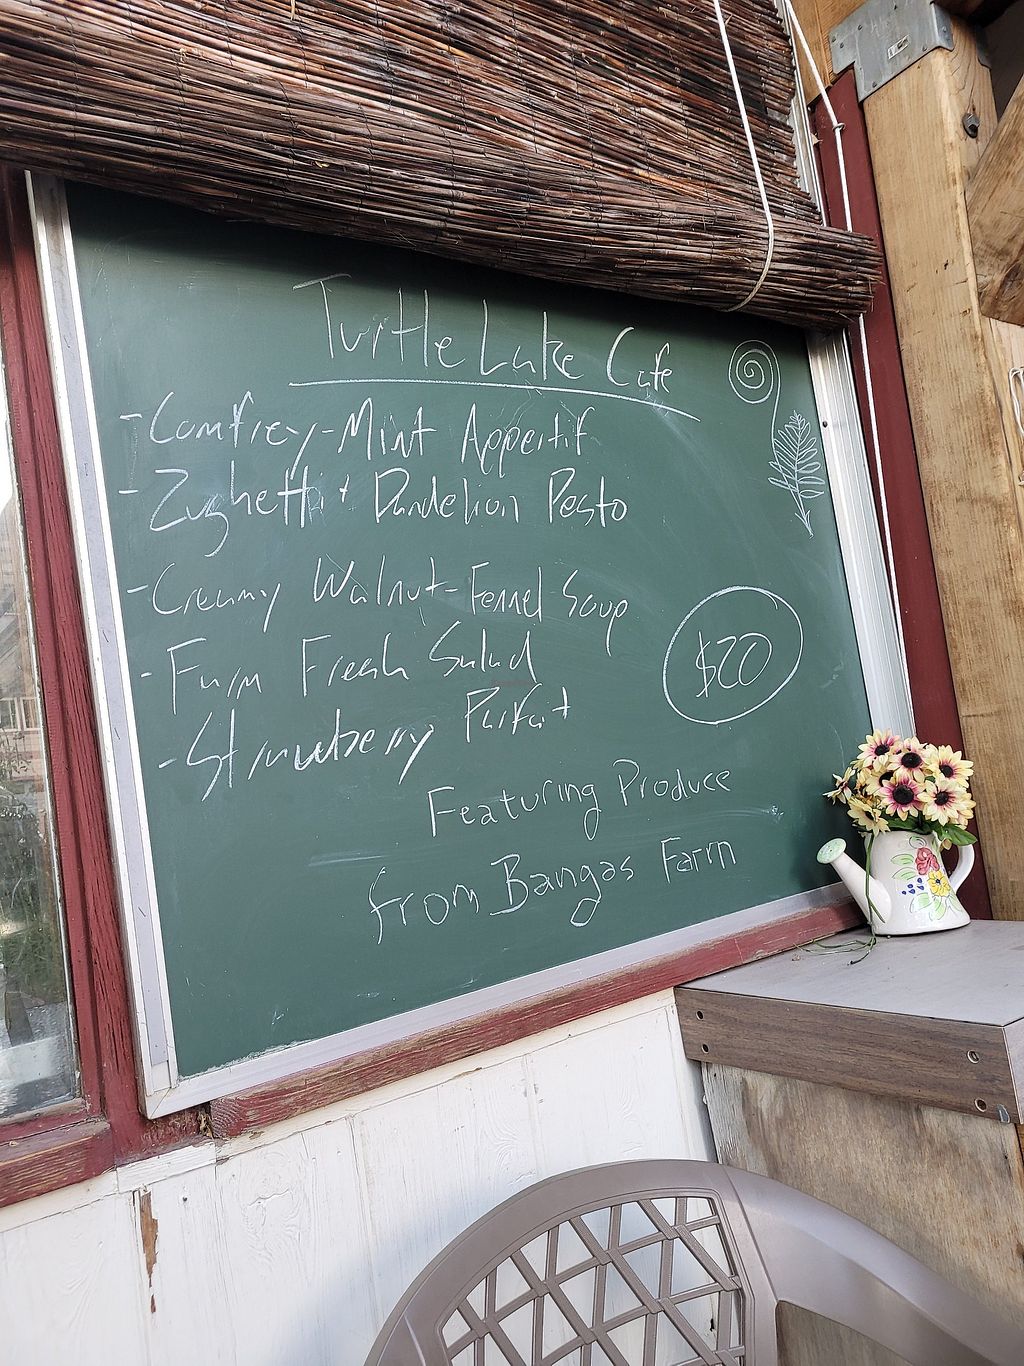 Turtle Lake Cafe
- Comfrey-Mint Appertif
- Zughetti + Dandelion Pesto
- Creamy Walnut-Fennel Soup
- Farm Fresh Salad
- Strawberry Parfait
$20
Featuring Produce
from Bangas Farm